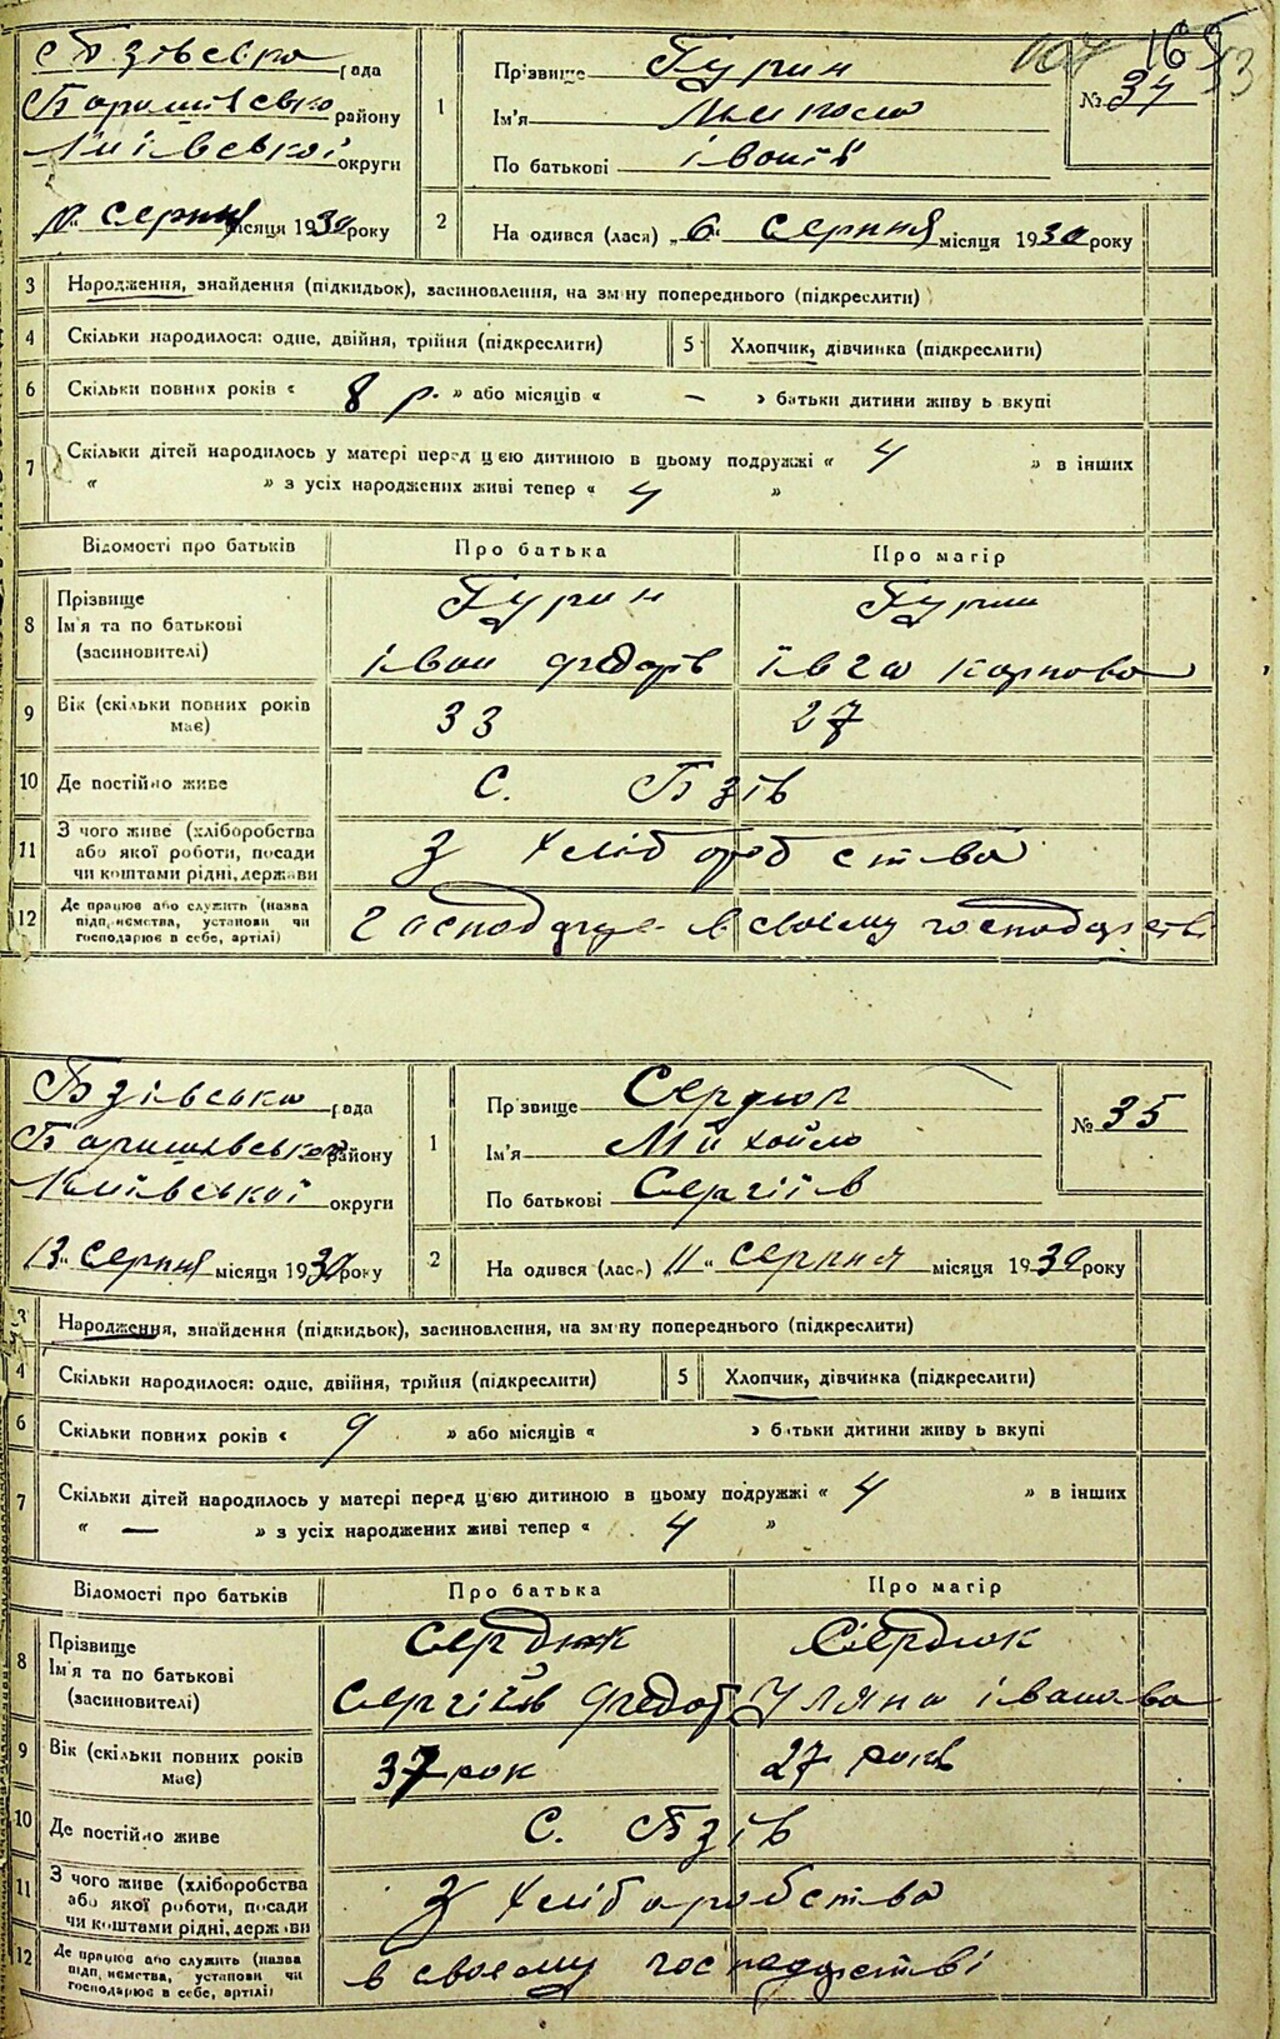 Бзівська рада
Баришівсько району
Київської округи
10 серпня місяця 1930 року
1
Прізвище Гурин
Ім'я Микола
По батькові Іванів
165
53
№ 34
2
На одився (лася) „6“ серпня місяця 1930 року
3 Народження, знайдення (підкидьок), засиновлення, на зм ну попереднього (підкреслити)
4 Скільки народилося: одне, двійня, трійня (підкреслити) 5 Хлопчик, дівчинка (підкреслити)
6 Скільки повних років « 8 р. » або місяців « – » батьки дитини живу ь вкупі
7 Скільки дітей народилось у матері перед цією дитиною в цьому подружжі « 4 » в інших
« » з усіх народжених живі тепер « 4 »
Відомості про батьків Про батька Про матір
8 Прізвище
Ім'я та по батькові
(засиновителі)
Гурин Гурин
Іван Федорів Ївга Карпова
9 Вік (скільки повних років має) 33 27
10 Де постійно живе С. Бзів
11 З чого живе (хліборобства
або якої роботи, посади
чи коштами рідні, держави
З хліборобства
12 Де працює або служить (назва
підп. иємства, установи чи
господарює в себе, артілі)
Господарує в своєму господарстві
Бзівська рада
Баришівської району
Київської округи
13 „ серпня місяця 1930 року
1
Пр звище Сердюк
Ім'я Михайло
По батькові Сергіїв
№ 35
2
На одився (лас ) „11“ серпня місяця 1930 року
3 Народження, знайдення (підкидьок), засиновлення, на зм ну попереднього (підкреслити)
4 Скільки народилося: одне, двійня, трійня (підкреслити) 5 Хлопчик, дівчинка (підкреслити)
6 Скільки повних років « 9 » або місяців « » батьки дитини живу ь вкупі
7 Скільки дітей народилось у матері перед цією дитиною в цьому подружжі « 4 » в інших
« — » з усіх народжених живі тепер « 4 »
Відомості про батьків Про батька Про матір
8 Прізвище
Ім'я та по батькові
(засиновителі)
Сердюк Сердюк
Сергій Федот Уляна Іванова
9 Вік (скільки повних років має) 37 рок 27 років
10 Де постійно живе С. Бзів
11 З чого живе (хліборобства
або якої роботи, посади
чи коштами рідні, держави
З хліборобства
12 Де працює або служить (назва
підп. иємства, установи чи
господарює в себе, артілі)
в своєму господарстві